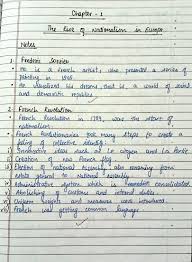 Chapter - 1
The Rise of Nationalism in Europe
Notes
1 Frederic Sorrieu
→ He is a French artist, who prepared a series of
painting in 1848.
→ He visualized his dream, that is, a world of social
and democratic republics
2 French Revolution
→ French Revolution in 1789, was the start of
nationalism.
→ French Revolutionaries took many steps to create a
feeling of collective identity:
i) Introduced ideas such as le citoyen and La Patrie
ii) Creation of new French flag
iii) Election of National Assembly also renaming from
Estate general to National Assembly
iv) Administrative system which is centralised
v) Abolishing of customs and internal duties
vi) Uniform weights and measures were introduced
vii) French was getting common language